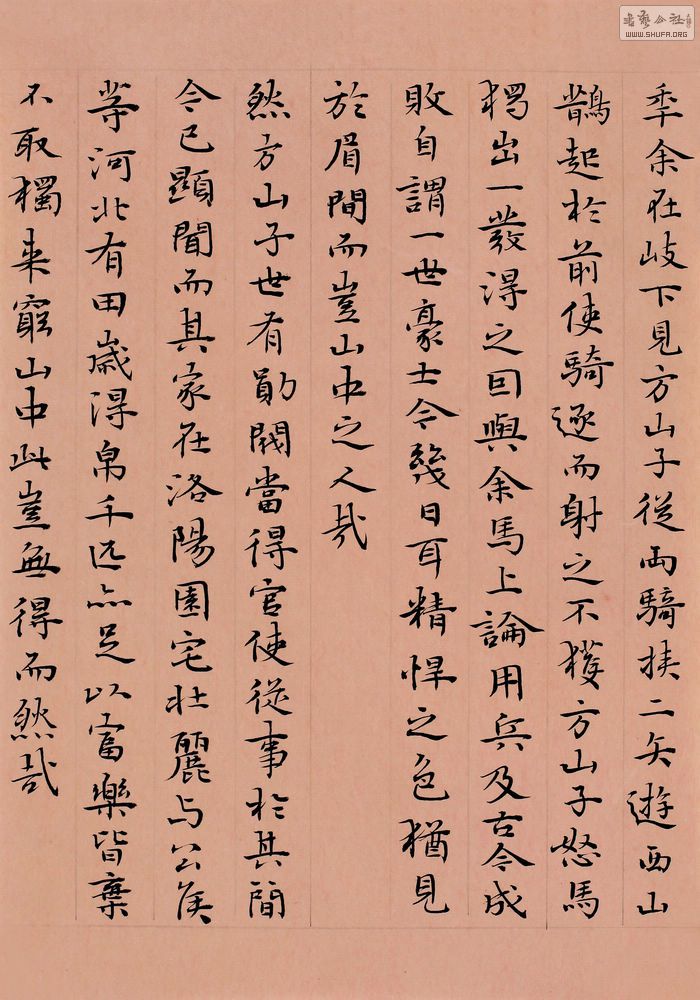 年余在岐下見方山子從兩騎挾二矢遊西山
鵲起於前使騎逐而射之不獲方山子怒馬
獨出一發得之因與余馬上論用兵及古今成
敗自謂一世豪士今幾日耳精悍之色猶見
於眉間而豈山中之人哉
然方山子世有勛閥當得官使從事於其間
今已顯聞而其家在洛陽園宅壯麗与公侯
等河北有田歲得帛千匹亦足以富樂皆棄
不取獨来窮山中此豈無得而然哉
書藝公社
WWW.SHUFA.ORG